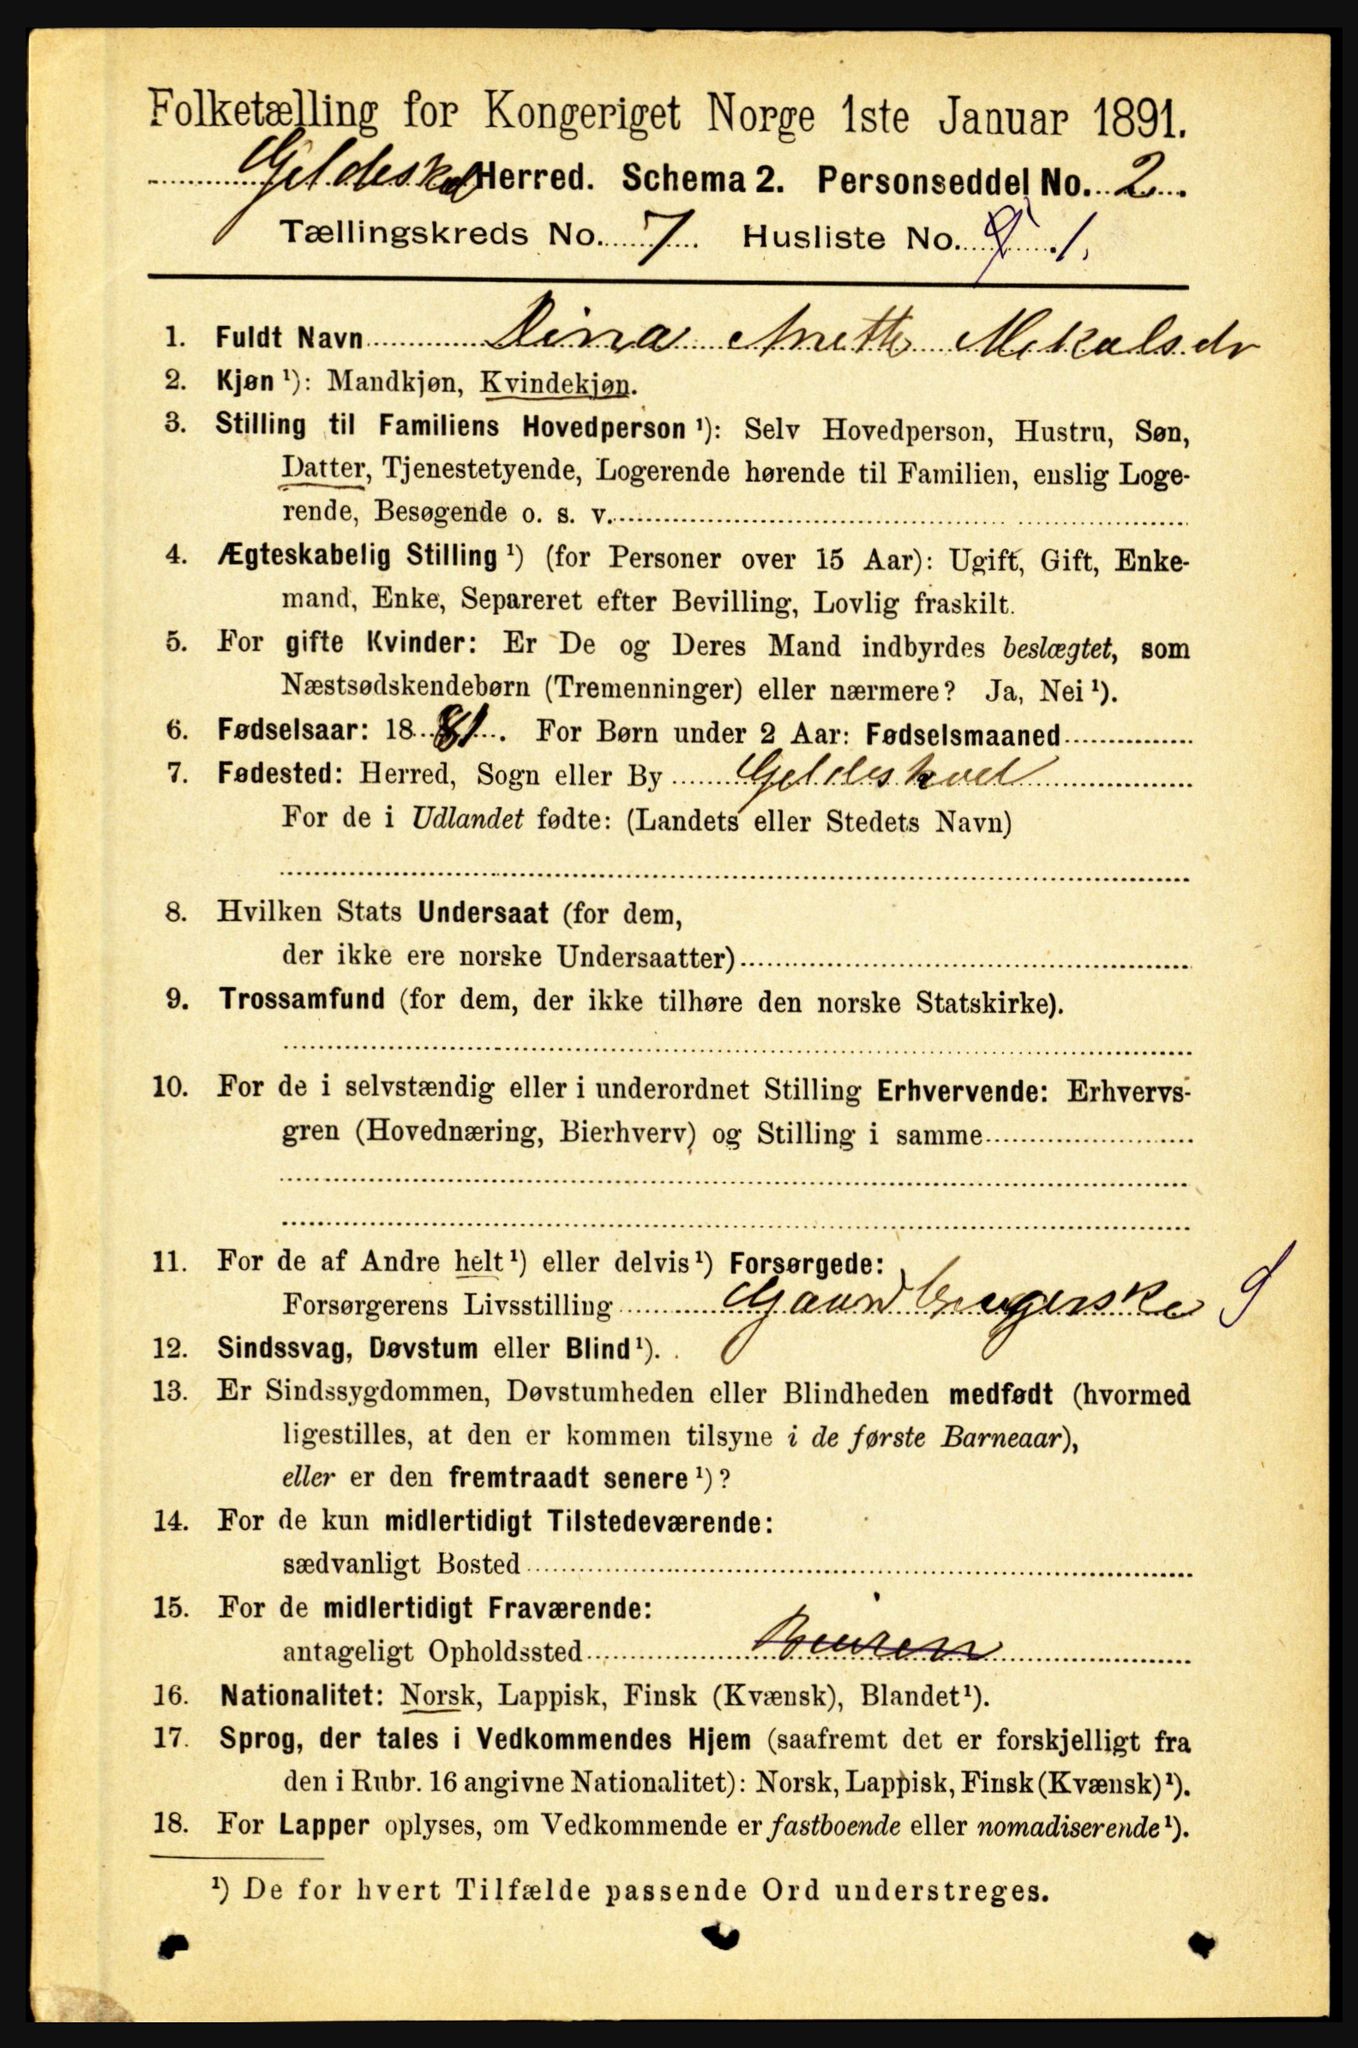 Folketælling for Kongeriget Norge 1ste Januar 1891.
Gildeskal Herred. Schema 2. Personseddel No. 2.
Tællingskreds No. 7 Husliste No. 1.
1. Fuldt Navn Dina Anette Mekalsdr
2. Kjøn ¹): Mandkjøn, Kvindekjøn.
3. Stilling til Familiens Hovedperson ¹): Selv Hovedperson, Hustru, Søn,
Datter, Tjenestetyende, Logerende hørende til Familien, enslig Loge-
rende, Besøgende o. s. v.
4. Ægteskabelig Stilling ¹) (for Personer over 15 Aar): Ugift, Gift, Enke-
mand, Enke, Separeret efter Bevilling, Lovlig fraskilt.
5. For gifte Kvinder: Er De og Deres Mand indbyrdes beslægtet, som
Næstsødskendebørn (Tremenninger) eller nærmere? Ja, Nei ¹).
6. Fødselsaar: 1881. For Børn under 2 Aar: Fødselsmaaned
7. Fødested: Herred, Sogn eller By Gildeskaal
For de i Udlandet fødte: (Landets eller Stedets Navn)
8. Hvilken Stats Undersaat (for dem,
der ikke ere norske Undersaatter)
9. Trossamfund (for dem, der ikke tilhøre den norske Statskirke).
10. For de i selvstændig eller i underordnet Stilling Erhvervende: Erhvervs-
gren (Hovednæring, Bierhverv) og Stilling i samme
11. For de af Andre helt ¹) eller delvis ¹) Forsørgede:
Forsørgerens Livsstilling Gaardbrugerske
12. Sindssvag, Døvstum eller Blind ¹).
13. Er Sindssygdommen, Døvstumheden eller Blindheden medfødt (hvormed
ligestilles, at den er kommen tilsyne i de første Barneaar),
eller er den fremtraadt senere ¹)?
14. For de kun midlertidigt Tilstedeværende:
sædvanligt Bosted
15. For de midlertidigt Fraværende:
antageligt Opholdssted Beiren
16. Nationalitet: Norsk, Lappisk, Finsk (Kvænsk), Blandet ¹).
17. Sprog, der tales i Vedkommendes Hjem (saafremt det er forskjelligt fra
den i Rubr. 16 angivne Nationalitet): Norsk, Lappisk, Finsk (Kvænsk) ¹).
18. For Lapper oplyses, om Vedkommende er fastboende eller nomadiserende ¹).
¹) De for hvert Tilfælde passende Ord understreges.